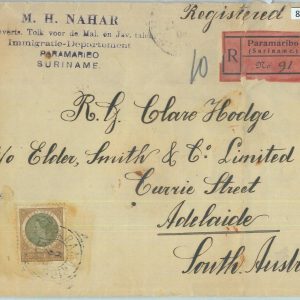 M. H. NAHAR
Registered
Tolk voor de Mal. en Jav. talen
Immigratie-Departement
PARAMARIBO
SURINAME.
R
Paramaribo
(Suriname.)
No 91
10
R. G. Clare Hodge
c/o Elder, Smith & Co. Limited
Currie Street
Adelaide
South Aust